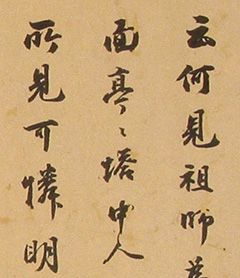 云何見祖師
面亭〻塔中人
所見可憐明